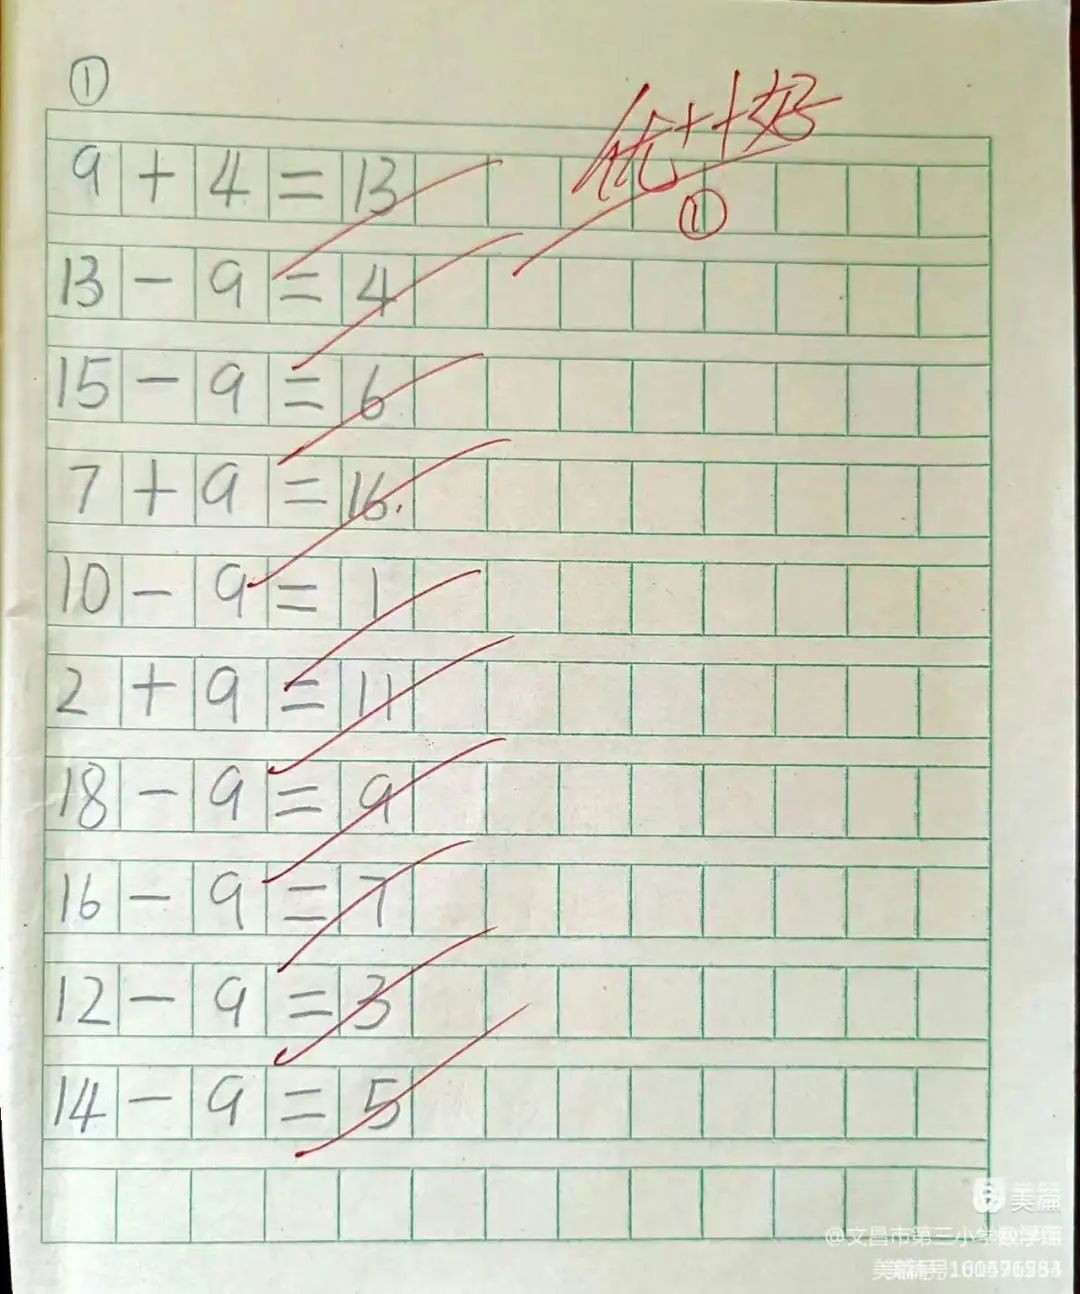 ①
优++好
①
9+4=13
13-9=4
15-9=6
7+9=16.
10-9=1
2+9=11
18-9=9
16-9=7
12-9=3
14-9=5
美篇
@文昌市第三小学数学
美篇号